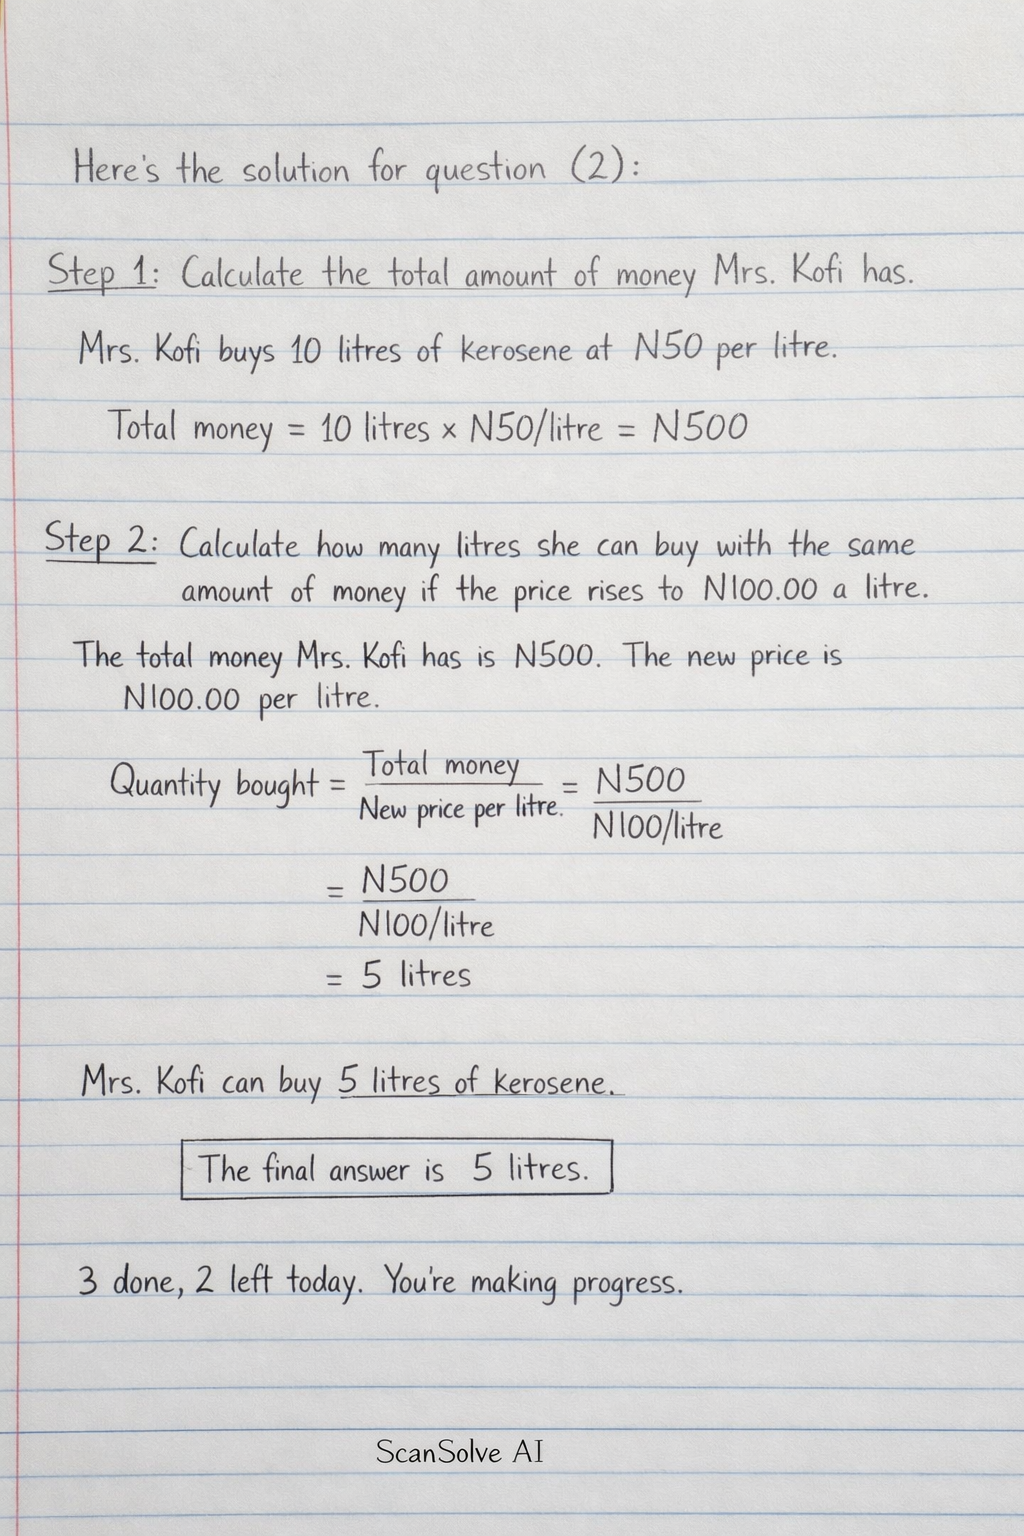 Here's the solution for question (2):
Step 1: Calculate the total amount of money Mrs. Kofi has.
Mrs. Kofi buys 10 litres of kerosene at N50 per litre.
Total money = 10 litres × N50/litre = N500
Step 2: Calculate how many litres she can buy with the same
amount of money if the price rises to N100.00 a litre.
The total money Mrs. Kofi has is N500. The new price is
N100.00 per litre.
Quantity bought = Total money / New price per litre. = N500 / N100/litre
= N500 / N100/litre
= 5 litres
Mrs. Kofi can buy 5 litres of kerosene.
The final answer is 5 litres.
3 done, 2 left today. You're making progress.
ScanSolve AI